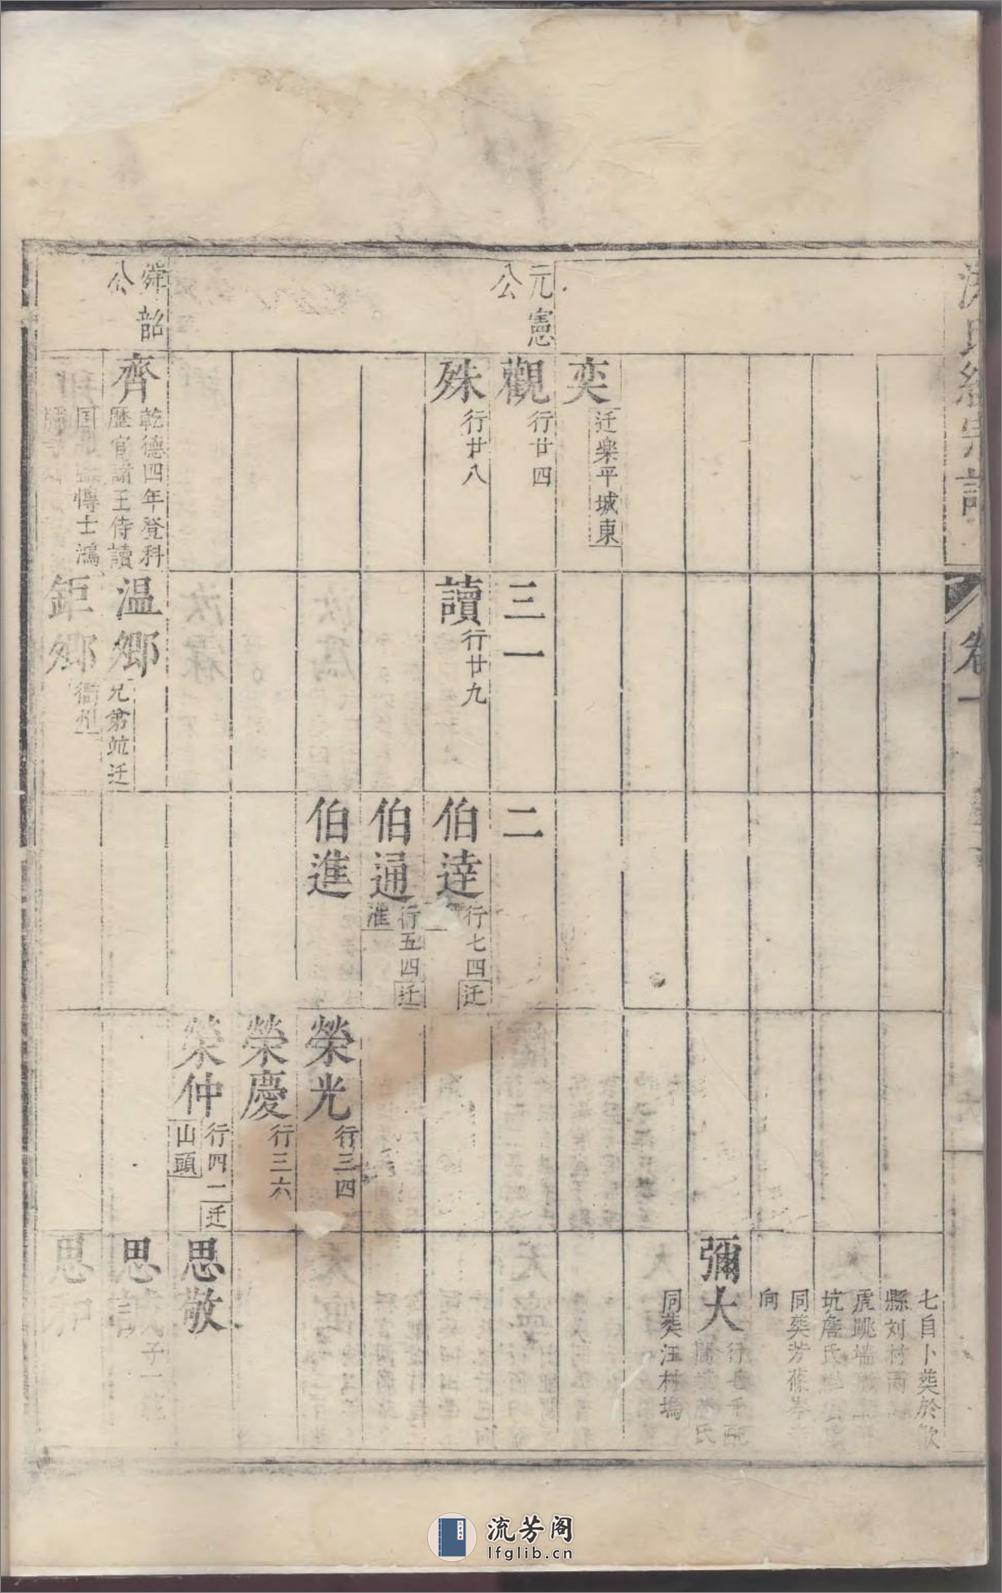 卷一
元憲公
舜韶公
奕
迁樂平城東
觀
行廿四
殊
行廿八
齊
乾德四年登科
歷官諸王侍讀
博士鴻
三一
讀
行廿九
温鄉
兄弟竝迁
鉅鄉
衢州
二
伯達
行七四迁
伯通
行五四迁
淮
伯進
榮光
行三四
榮慶
行三六
榮仲
行四二迁
山頭
七自卜葬於歙
縣刘村
坑詹氏
同葬芳
向
彌大
同葬汪村塢
思敬
思誠
子一
思
流芳阁
lfglib.cn